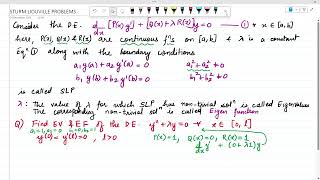 STURM LIOUVILLE PROBLEMS
Consider the DE. d/dx [P(x) y'] + [Q(x) + λ R(x)] y = 0 —① ∀ x ∈ [a, b]
here, P(x), Q(x) & R(x) are continuous fⁿs on [a, b] & λ is a constant
Eqⁿ ① along with the boundary conditions
a₁ y(a) + a₂ y'(a) = 0 a₁² + a₂² ≠ 0
b₁ y(b) + b₂ y'(b) = 0 b₁² + b₂² ≠ 0
is called SLP
λ : The value of λ for which SLP has non-trivial solⁿ is called Eigenvalues
The corresponding non-trivial solⁿ is called Eigen function
Q) Find EV & EF of the DE. y'' + λy = 0 ∀ x ∈ [0, l]
y(0) = y'(l) = 0, l > 0 P(x) = 1, Q(x) = 0, R(x) = 1
d/dx y' + (0 + λ1) y =